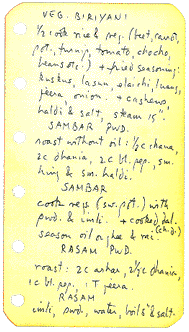 VEG. BIRIYANI
1/2 cook rice & veg. (beet, carrot,
pot., turnip, tomato, chocho,
beans etc.) + fried seasoning:
kuskus, lasun, elaichi, luang,
jeera, onion. + cashews,
haldi & salt, steam 15'.
SAMBAR PWD.
roast without oil: 1/2 c chana,
2c dhania, 2c bl. pep., sm.
hing & sm. haldi.
SAMBAR
cook vegs (sw. pot.) with
pwd. & imli. + cooked dal.
season oil or ghee & rai
RASAM PWD.
roast: 2c arhar, 2 1/2c dhania,
1c bl. pep., 1 T jeera.
RASAM
imli, pwd., water, boil & salt.